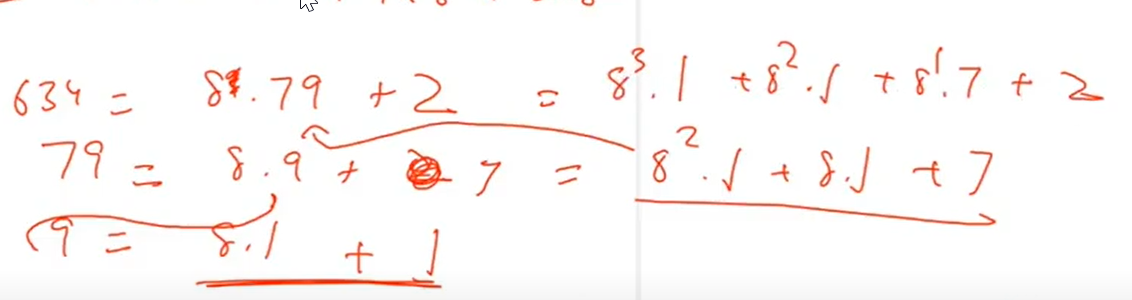 634 = 8.79 + 2 = 8³.1 + 8².1 + 8¹.7 + 2
79 = 8.9 + 7 = 8².1 + 8.1 + 7
9 = 8.1 + 1